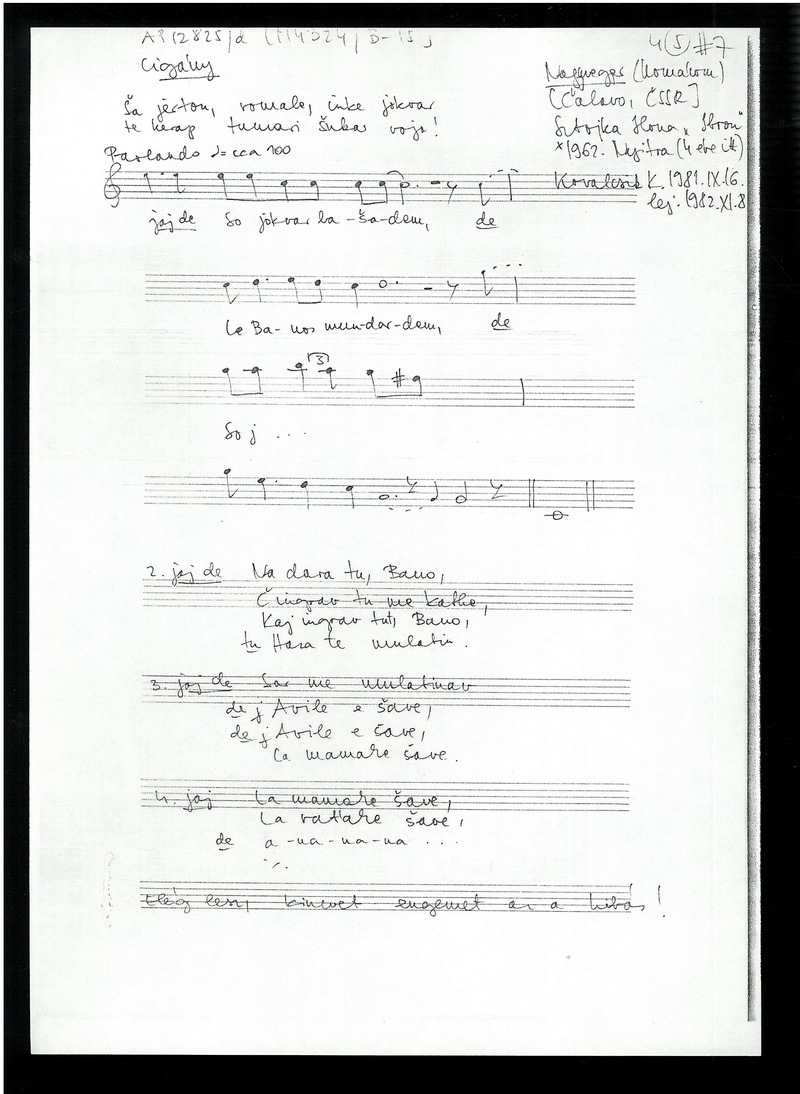 AP 12825/d (M4324/B-15)
4 (5) #7
Cigány
Nagymegyer (Komárom)
[Čalovo, ČSSR]
Ša jerton, romale, inke jokvar
te kerap tumari šukar voja!
Sztojka Ilona
*1962. Nyitra (4 éve itt)
Parlando ♩= cca 100
Kovalcsik K. 1981.IX.16.
lej. 1982.XI.8
jaj de So jokvar ba-ša-dem, de
Le Ba-nos mun-dar-dem, de
So j ...
2. jaj de Na dara tu, Bano,
Č ingrav tu me kathe,
Kaj ingrav tut, Bano,
tu Hara te mulatin.
3. jaj de Sar me mulatinav
de j Avile e šave,
de j Avile e šave,
La mamake šave.
4. jaj La mamake šave,
La rat'ake šave,
de a-na-na-na ...
Elég lesz, kinevet engemet az a hibás!